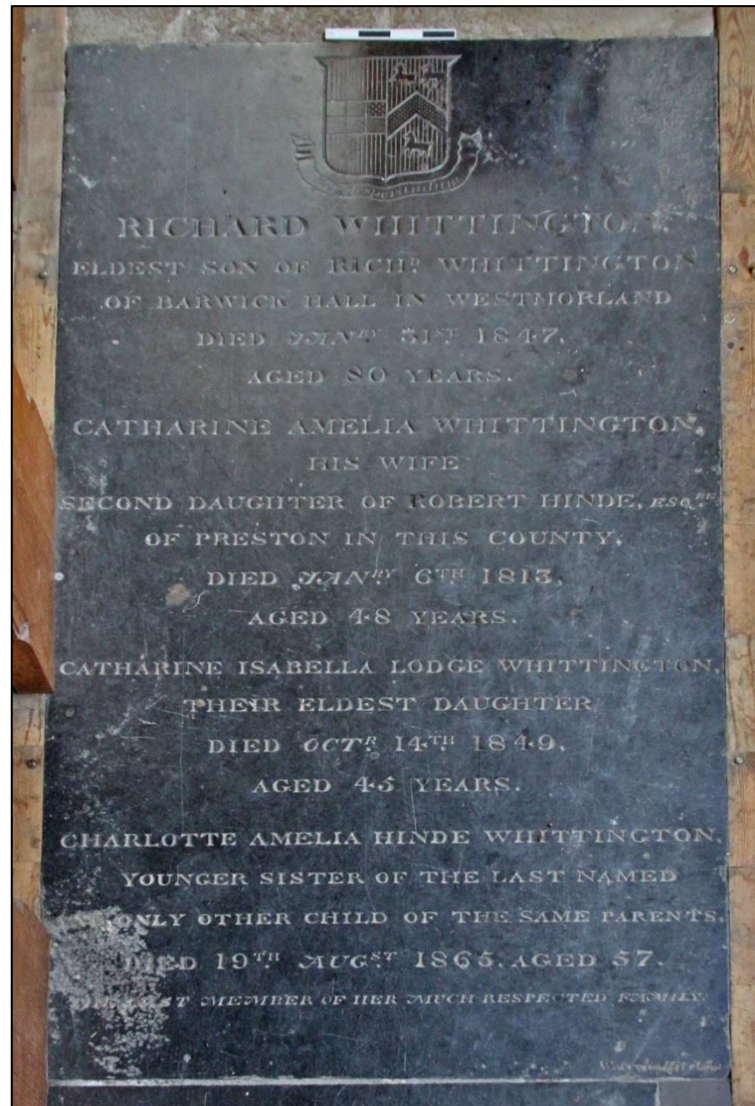 Sperandum
RICHARD WHITTINGTON,
ELDEST SON OF RICHD. WHITTINGTON
OF BARWICK HALL IN WESTMORLAND
DIED JANRY 31ST 1847,
AGED 80 YEARS.
CATHARINE AMELIA WHITTINGTON,
HIS WIFE
SECOND DAUGHTER OF ROBERT HINDE, ESQRE.
OF PRESTON IN THIS COUNTY,
DIED JANRY 6TH 1813,
AGED 48 YEARS.
CATHARINE ISABELLA LODGE WHITTINGTON,
THEIR ELDEST DAUGHTER
DIED OCTR. 14TH 1849,
AGED 45 YEARS.
CHARLOTTE AMELIA HINDE WHITTINGTON,
YOUNGER SISTER OF THE LAST NAMED
ONLY OTHER CHILD OF THE SAME PARENTS,
DIED 19TH AUGST 1865, AGED 57.
LAST MEMBER OF HER MUCH RESPECTED FAMILY.